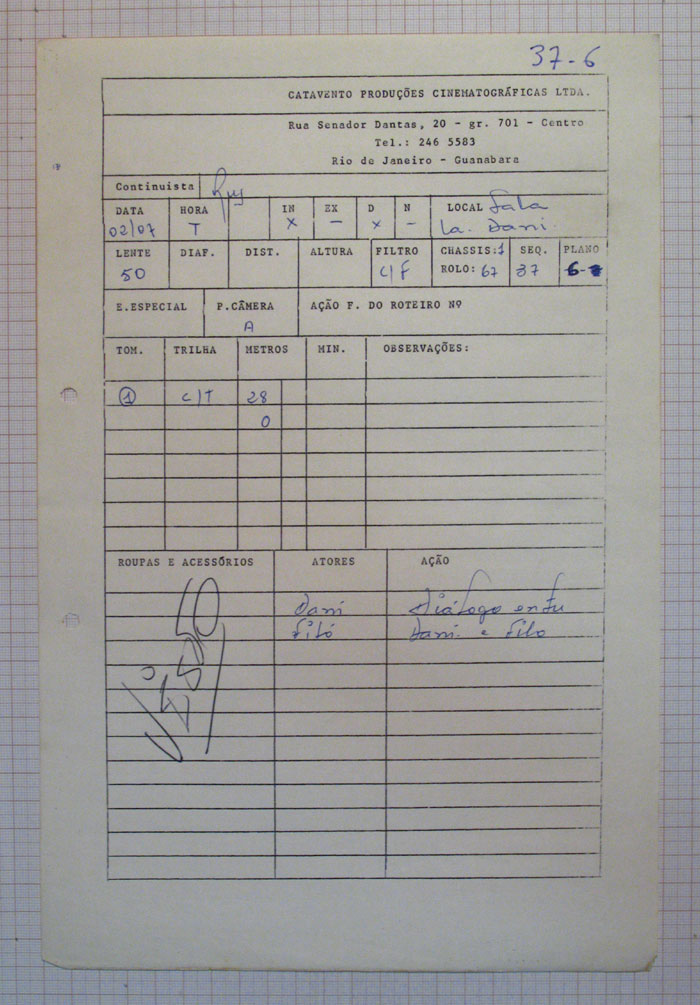 37-6
CATAVENTO PRODUÇÕES CINEMATOGRÁFICAS LTDA.
Rua Senador Dantas, 20 - gr. 701 - Centro
Tel.: 246 5583
Rio de Janeiro - Guanabara
Continuista Ruy
DATA HORA IN EX D N LOCAL Sala
02/07 T X — X — La. Dani.
LENTE DIAF. DIST. ALTURA FILTRO CHASSIS:1 SEQ. PLANO
50 C/F ROLO: 67 37 6-
E.ESPECIAL P.CÂMERA AÇÃO F. DO ROTEIRO Nº
A
TOM. TRILHA METROS MIN. OBSERVAÇÕES:
1 C/T 28
0
ROUPAS E ACESSÓRIOS ATORES AÇÃO
Dani Diálogo entre
Filó Dani e Filo